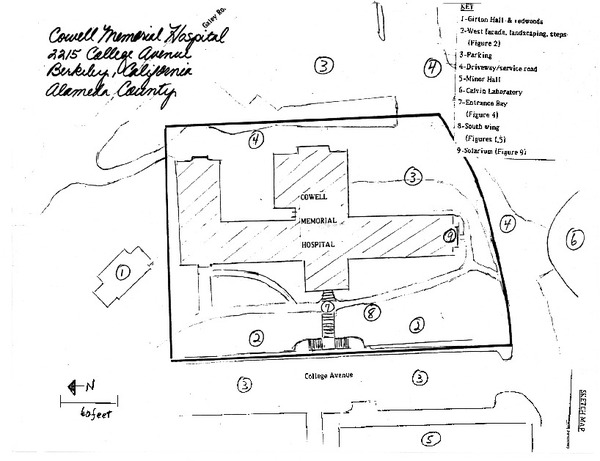 Galey Rd.
Cowell Memorial Hospital
2215 College Avenue
Berkeley, California
Alameda County
KEY
1-Girton Hall & redwoods
2-West facade, landscaping, steps
(Figure 2)
3-Parking
4-Driveway/service road
5-Minor Hall
6-Calvin Laboratory
7-Entrance Bay
(Figure 4)
8-South wing
(Figures 1,5)
9-Solarium (Figure 9)
3
4
4
3
COWELL
MEMORIAL
HOSPITAL
4
9
6
1
7
8
2
2
College Avenue
N
60 feet
3
3
5
SKETCH MAP